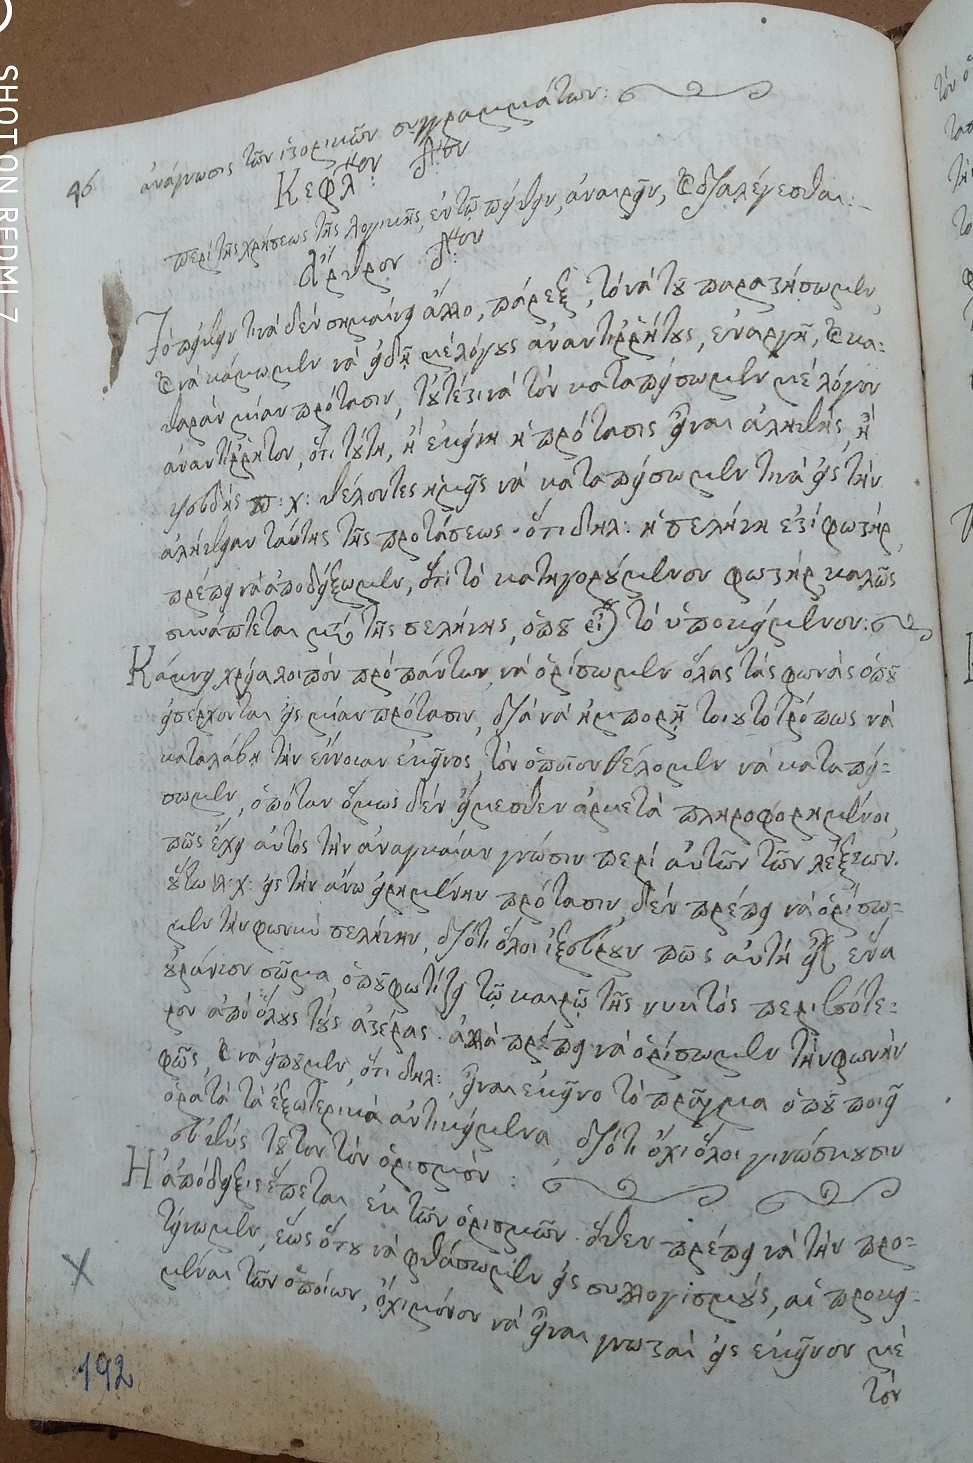 SHOT ON REDMI 7
46
ἀνάγνωσις τῶν ἱστορικῶν συγγραμμάτων:
Κεφλ: δ:ον
περὶ τῆς χρήσεως τῆς λογικῆς, ἐν τῷ πείθειν, ἀναιρεῖν, καὶ διαλέγεσθαι:
Ἄρθρον
Τὸ πείθειν τινὰ δὲν σημαίνει ἄλλο, πάρεξ, τὸ νὰ τοῦ παραστήσωμεν,
καὶ νὰ κάμωμεν νὰ ἰδῇ μὲ λόγους ἀναντιῤῥήτους, ἐναργῆ, καὶ κα=
θαρὰν μίαν πρότασιν, τουτέστι νὰ τὸν καταπείσωμεν μὲ λόγον
ἀναντίῤῥητον, ὅτι τούτη, ἢ ἐκείνη ἡ πρότασις εἶναι ἀληθής, ἢ
ψευδής π:χ: θέλοντες ἡμεῖς νὰ καταπείσωμεν τινὰ εἰς τὴν
ἀλήθειαν ταύτης τῆς προτάσεως· ὅτι δηλ: ἡ σελήνη ἐστὶ φωστήρ,
πρέπει νὰ ἀποδείξωμεν, ὅτι τὸ κατηγορούμενον φωστὴρ καλῶς
συνάπτεται μετὰ τῆς σελήνης, ὁποῦ εἶναι τὸ ὑποκείμενον:
Κάμνει χρεία λοιπὸν πρὸ πάντων, νὰ ὁρίσωμεν ὅλας τὰς φωνὰς ὁποῦ
εἰσέρχονται εἰς μίαν πρότασιν, διὰ νὰ ἠμπορῇ τοιουτοτρόπως νὰ
καταλάβῃ τὴν ἔννοιαν ἐκεῖνος, τὸν ὁποῖον θέλομεν νὰ καταπεί=
σωμεν, ὁπόταν ὅμως δὲν εἴμεσθεν ἀρκετὰ πληροφορημένοι,
πῶς ἔχει αὐτὸς τὴν ἀναγκαίαν γνῶσιν περὶ αὐτῶν τῶν λέξεων.
οὕτω π:χ: εἰς τὴν ἄνω εἰρημένην πρότασιν, δὲν πρέπει νὰ ὁρίσω=
μεν τὴν φωνὴν σελήνην, διότι ὅλοι ἰξεύρουν πῶς αὐτὴ εἶναι ἕνα
οὐράνιον σῶμα, ὁποῦ φωτίζει τῷ καιρῷ τῆς νυκτὸς περισσότε=
ρον ἀπὸ ὅλους τοὺς ἀστέρας· ἀλλὰ πρέπει νὰ ὁρίσωμεν τὴν φωνὴν
φῶς, καὶ νὰ εἰποῦμεν, ὅτι δηλ:, εἶναι ἐκεῖνο τὸ πρᾶγμα ὁποῦ ποιεῖ
ὁρατὰ τὰ ἐξωτερικὰ ἀντικείμενα, διότι ὄχι ὅλοι γινώσκουσιν
εὐθὺς τοῦτον τὸν ὁρισμόν:
Ἡ ἀπόδειξις ἕπεται ἐκ τῶν ὁρισμῶν· ὅθεν πρέπει νὰ τὴν προ=
τείνωμεν, ἕως ὅτου νὰ φθάσωμεν εἰς συλλογισμούς, αἱ προκεί=
μεναι τῶν ὁποίων, ὄχι μόνον νὰ εἶναι γνωσταὶ εἰς ἐκεῖνον μὲ
τὸν
192